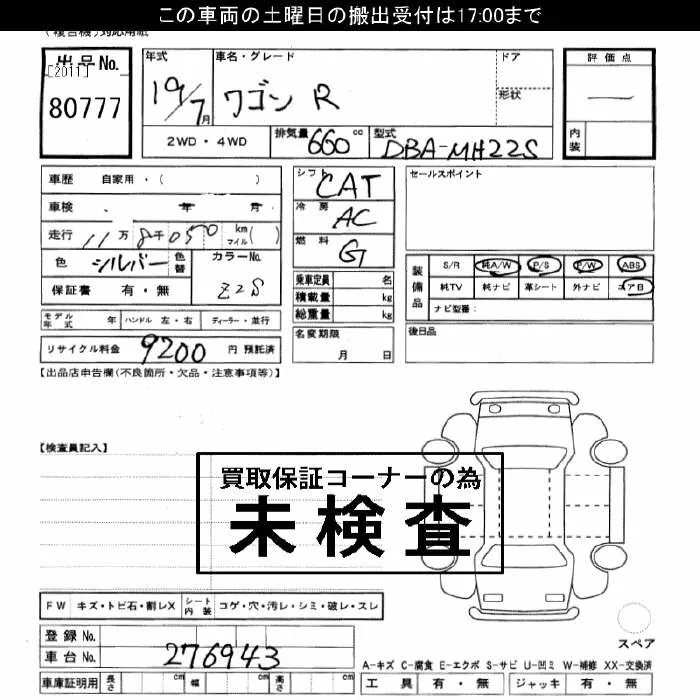 この車両の土曜日の搬出受付は17:00まで
出品No.
[2011]
80777
年式
19/7月
車名・グレード
ワゴン R
ドア
形状
2WD・4WD
排気量 660 cc
型式 DBA-MH22S
評価点
—
内装
車歴 自家用・( )
車検 年 月
走行 11万 8千 050 km マイル( )
色 シルバー 色替
カラーNo. Z2S
保証書 有・無
モデル年式 年
ハンドル 左・右
ディーラー・並行
リサイクル料金 9200 円 預託済
シフト CAT
冷房 AC
燃料 G
乗車定員 名
積載量 kg
総重量 kg
名変期限
月 日
セールスポイント
装備品
S/R 純A/W P/S P/W ABS
純TV 純ナビ 革シート 外ナビ エアB
ナビ型番:
後日品
【出品店申告欄(不良箇所・欠品・注意事項等)】
【検査員記入】
買取保証コーナーの為
未検査
FW キズ・トビ石・割レX
シート内装 コゲ・穴・汚レ・シミ・破レ・スレ
スペア
登録 No.
車台 No. 276943
車庫証明用 長さ cm 幅 cm 高さ cm
A-キズ C-腐食 E-エクボ S-サビ U-凹ミ W-補修 XX-交換済
工具 有・無 ジャッキ 有・無